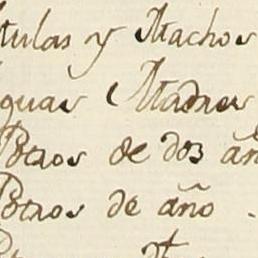 tulas y Machos
guas Madres
Potros de dos añ
Potros de año